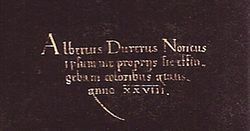 Albertus Durerus Noricus
ipsum me proprijs sic effin
gebam coloribus ętatis
anno XXVIII.